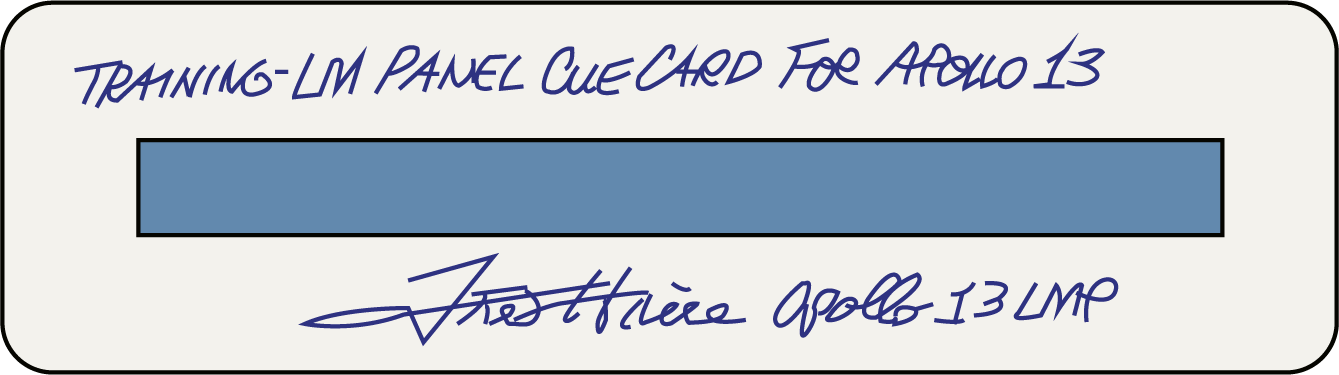 TRAINING-LM PANEL CUE CARD FOR APOLLO 13
Fred Haise Apollo 13 LMP